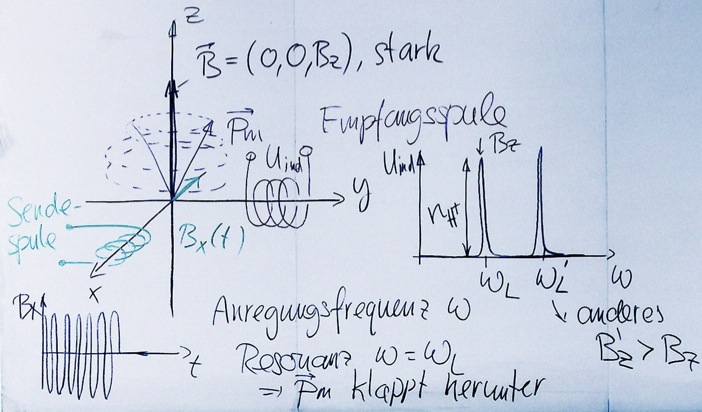 z
B⃗ = (0,0,Bz), stark
P⃗m
Empfangsspule
Uind
y
Sende-
spule
Bx(t)
x
Uind
↓ Bz
nH+
ωL
ωL'
ω
↘ anderes
Bz' > Bz
Bx
t
Anregungsfrequenz ω
Resonanz ω = ωL
⇒ P⃗m klappt herunter